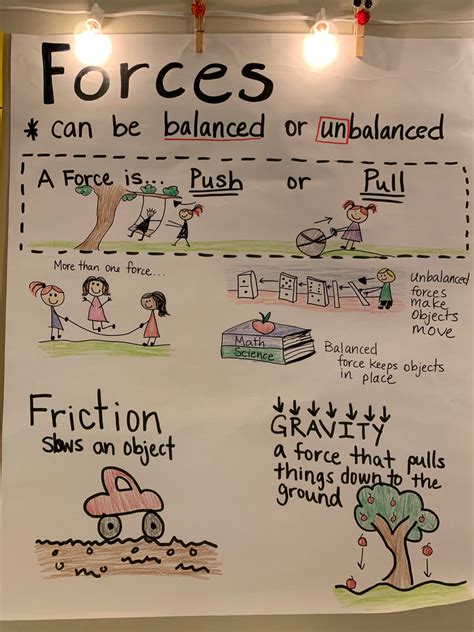 Forces
* can be balanced or unbalanced
A Force is... Push or Pull
More than one force...
Unbalanced
forces
make
objects
move
Math
Science
Balanced
force keeps objects
in place
Friction
Slows an object
GRAVITY
a force that pulls
things down to the
ground